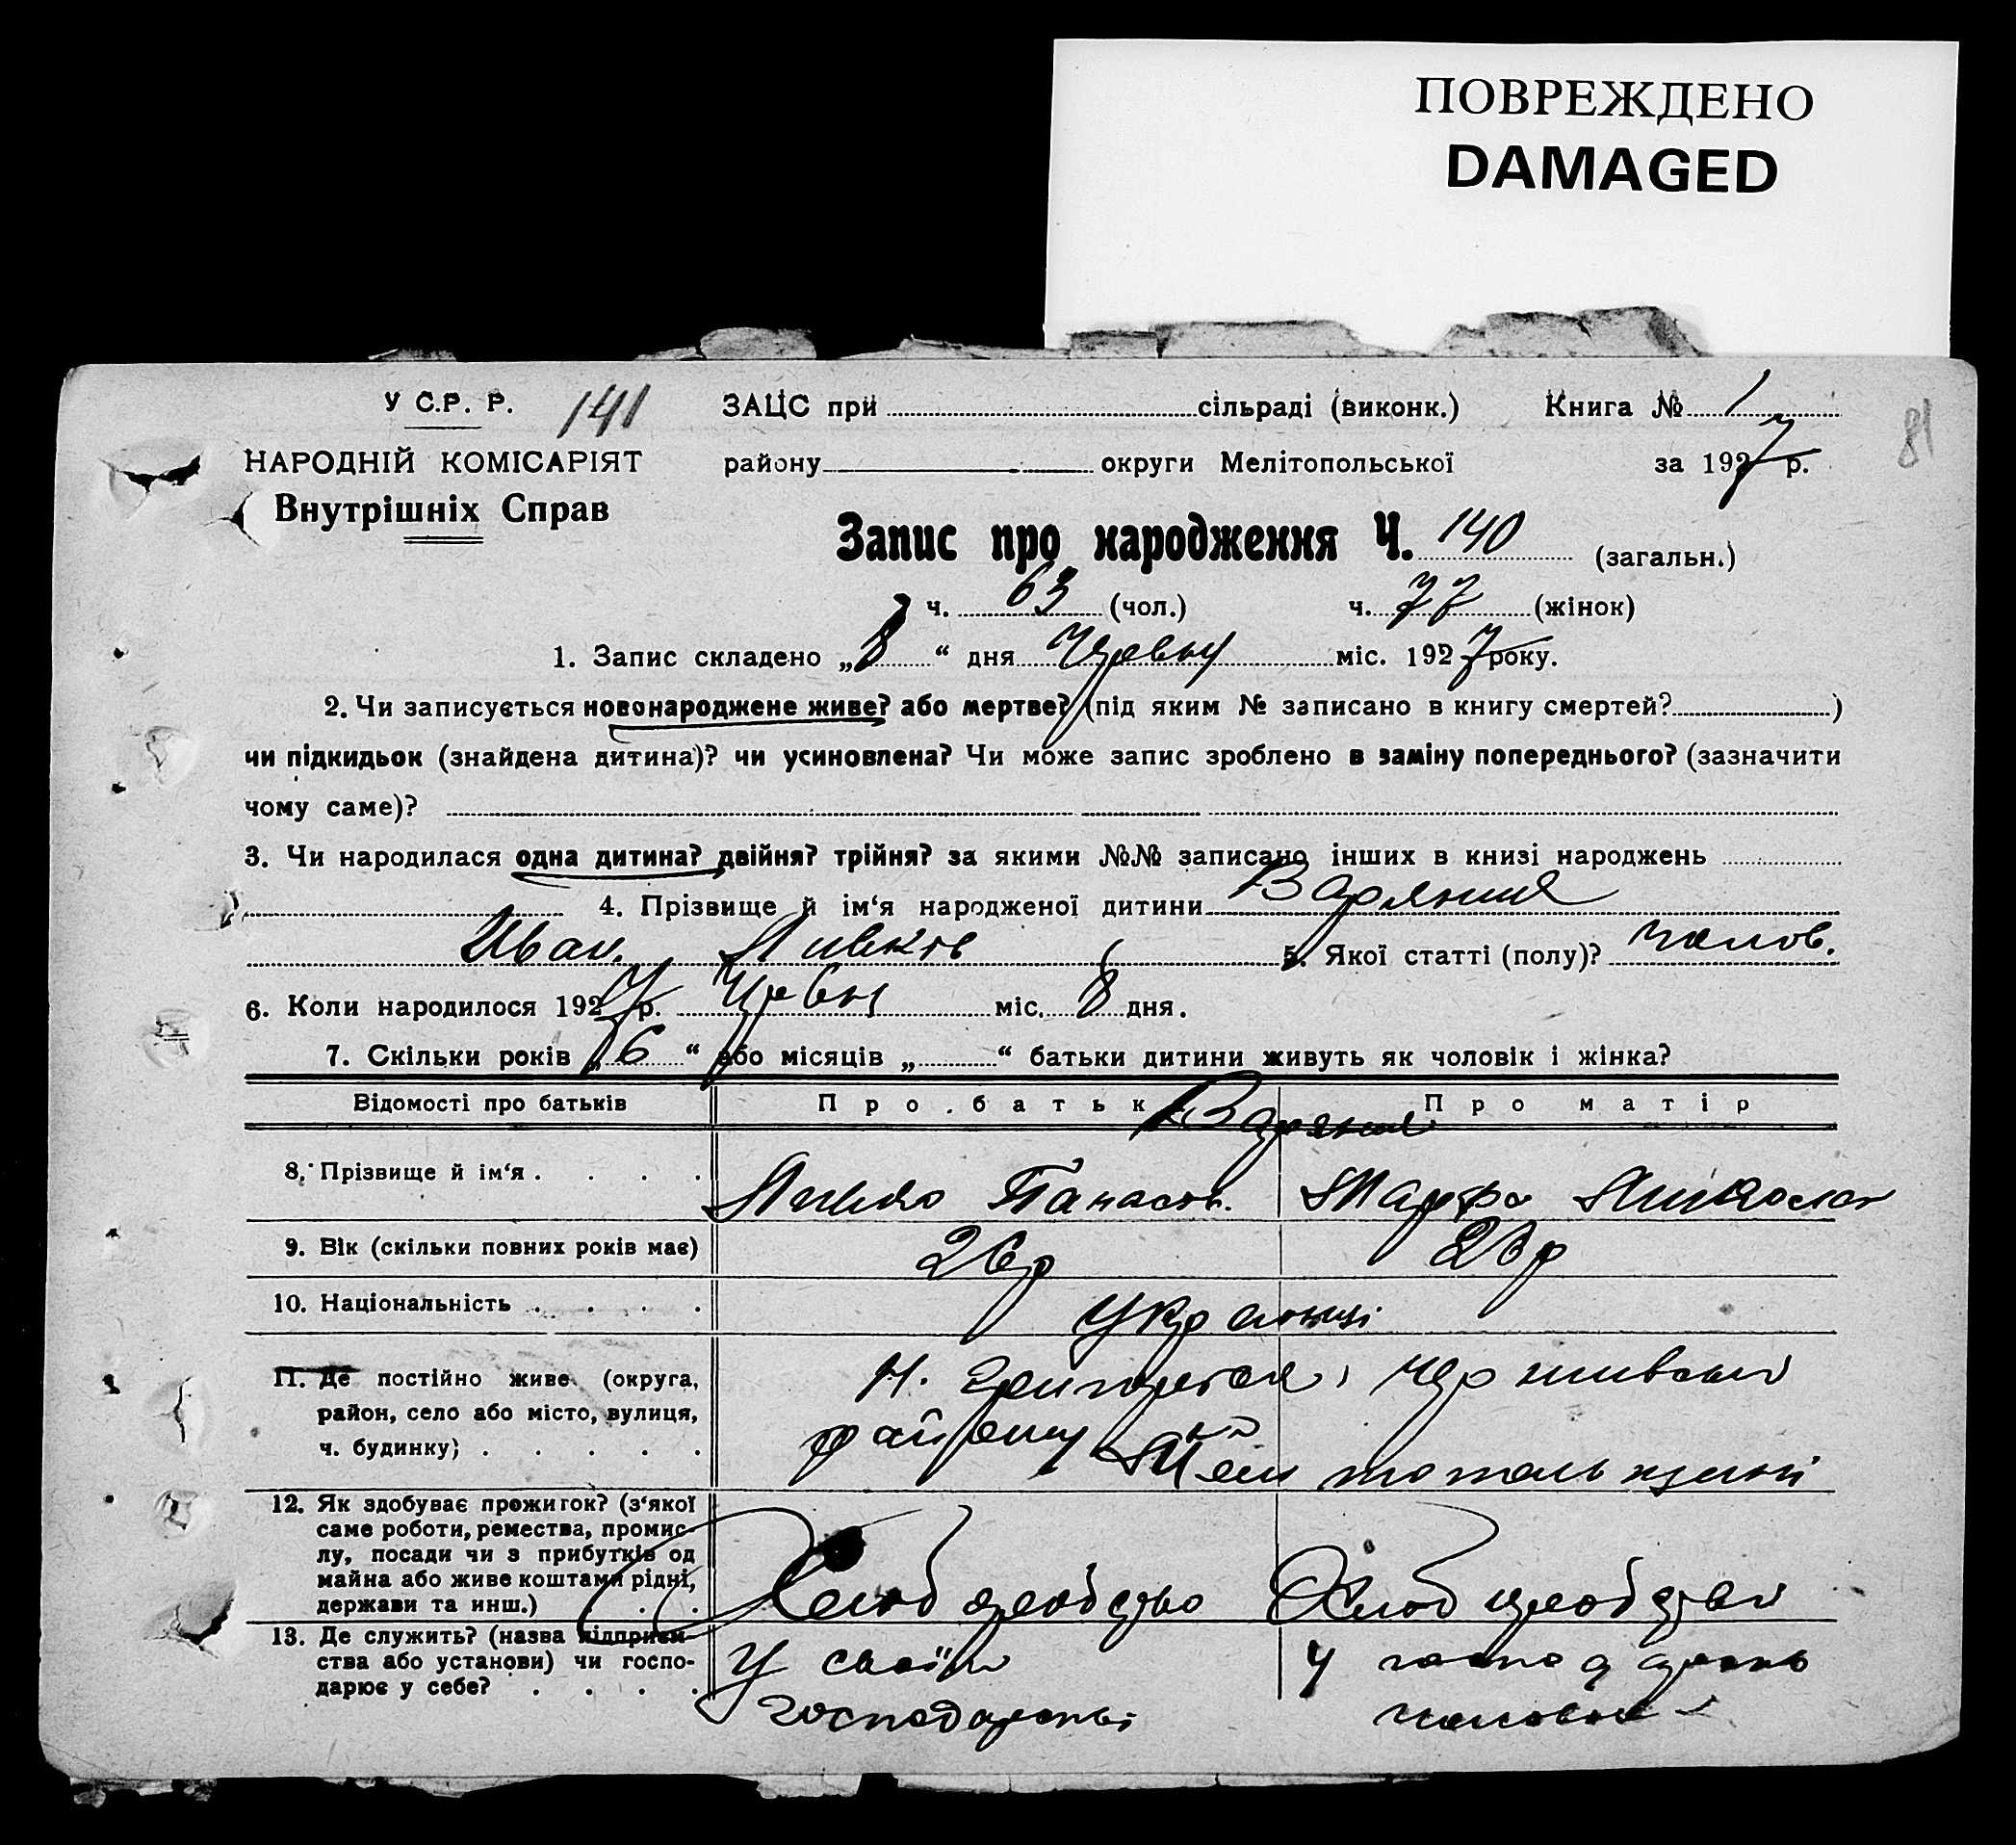 ПОВРЕЖДЕНО
DAMAGED
У С.Р. Р. 141 ЗАЦС при сільраді (виконк.) Книга № 1
81
НАРОДНІЙ КОМІСАРІЯТ району округи Мелітопольської за 1927 р.
Внутрішніх Справ
Запис про народження Ч. 140 (загальн.)
ч. 63 (чол.) ч. 77 (жінок)
1. Запис складено „8“ дня Червн міс. 1927 року.
2. Чи записується новонароджене живе? або мертве? (під яким № записано в книгу смертей? )
чи підкидьок (знайдена дитина)? чи усиновлена? Чи може запис зроблено в заміну попереднього? (зазначити
чому саме)?
3. Чи народилася одна дитина? двійня? трійня? за якими №№ записано інших в книзі народжень
4. Прізвище й ім‘я народженої дитини
Иван 5. Якої статті (полу)? чолов.
6. Коли народилося 1927 р. Червн міс. 8 дня.
7. Скільки років „6“ або місяців „ “ батьки дитини живуть як чоловік і жінка?
Відомості про батьків Про батьк Про матір
8. Прізвище й ім‘я . . . . Панасов. Марфа
9. Вік (скільки повних років має) 26р 23р
10. Національність . . . . Українці
11. Де постійно живе (округа,
район, село або місто, вулиця,
ч. будинку; . . . . . району
12. Як здобуває прожиток? (з‘якої
саме роботи, ремества, промис-
лу, посади чи з прибутків од
майна або живе коштами рідні,
держави та инш.) . .
13. Де служить? (назва підприєм-
ства або установи) чи госпо-
дарює у себе? . . . . У своїм У
господарстві